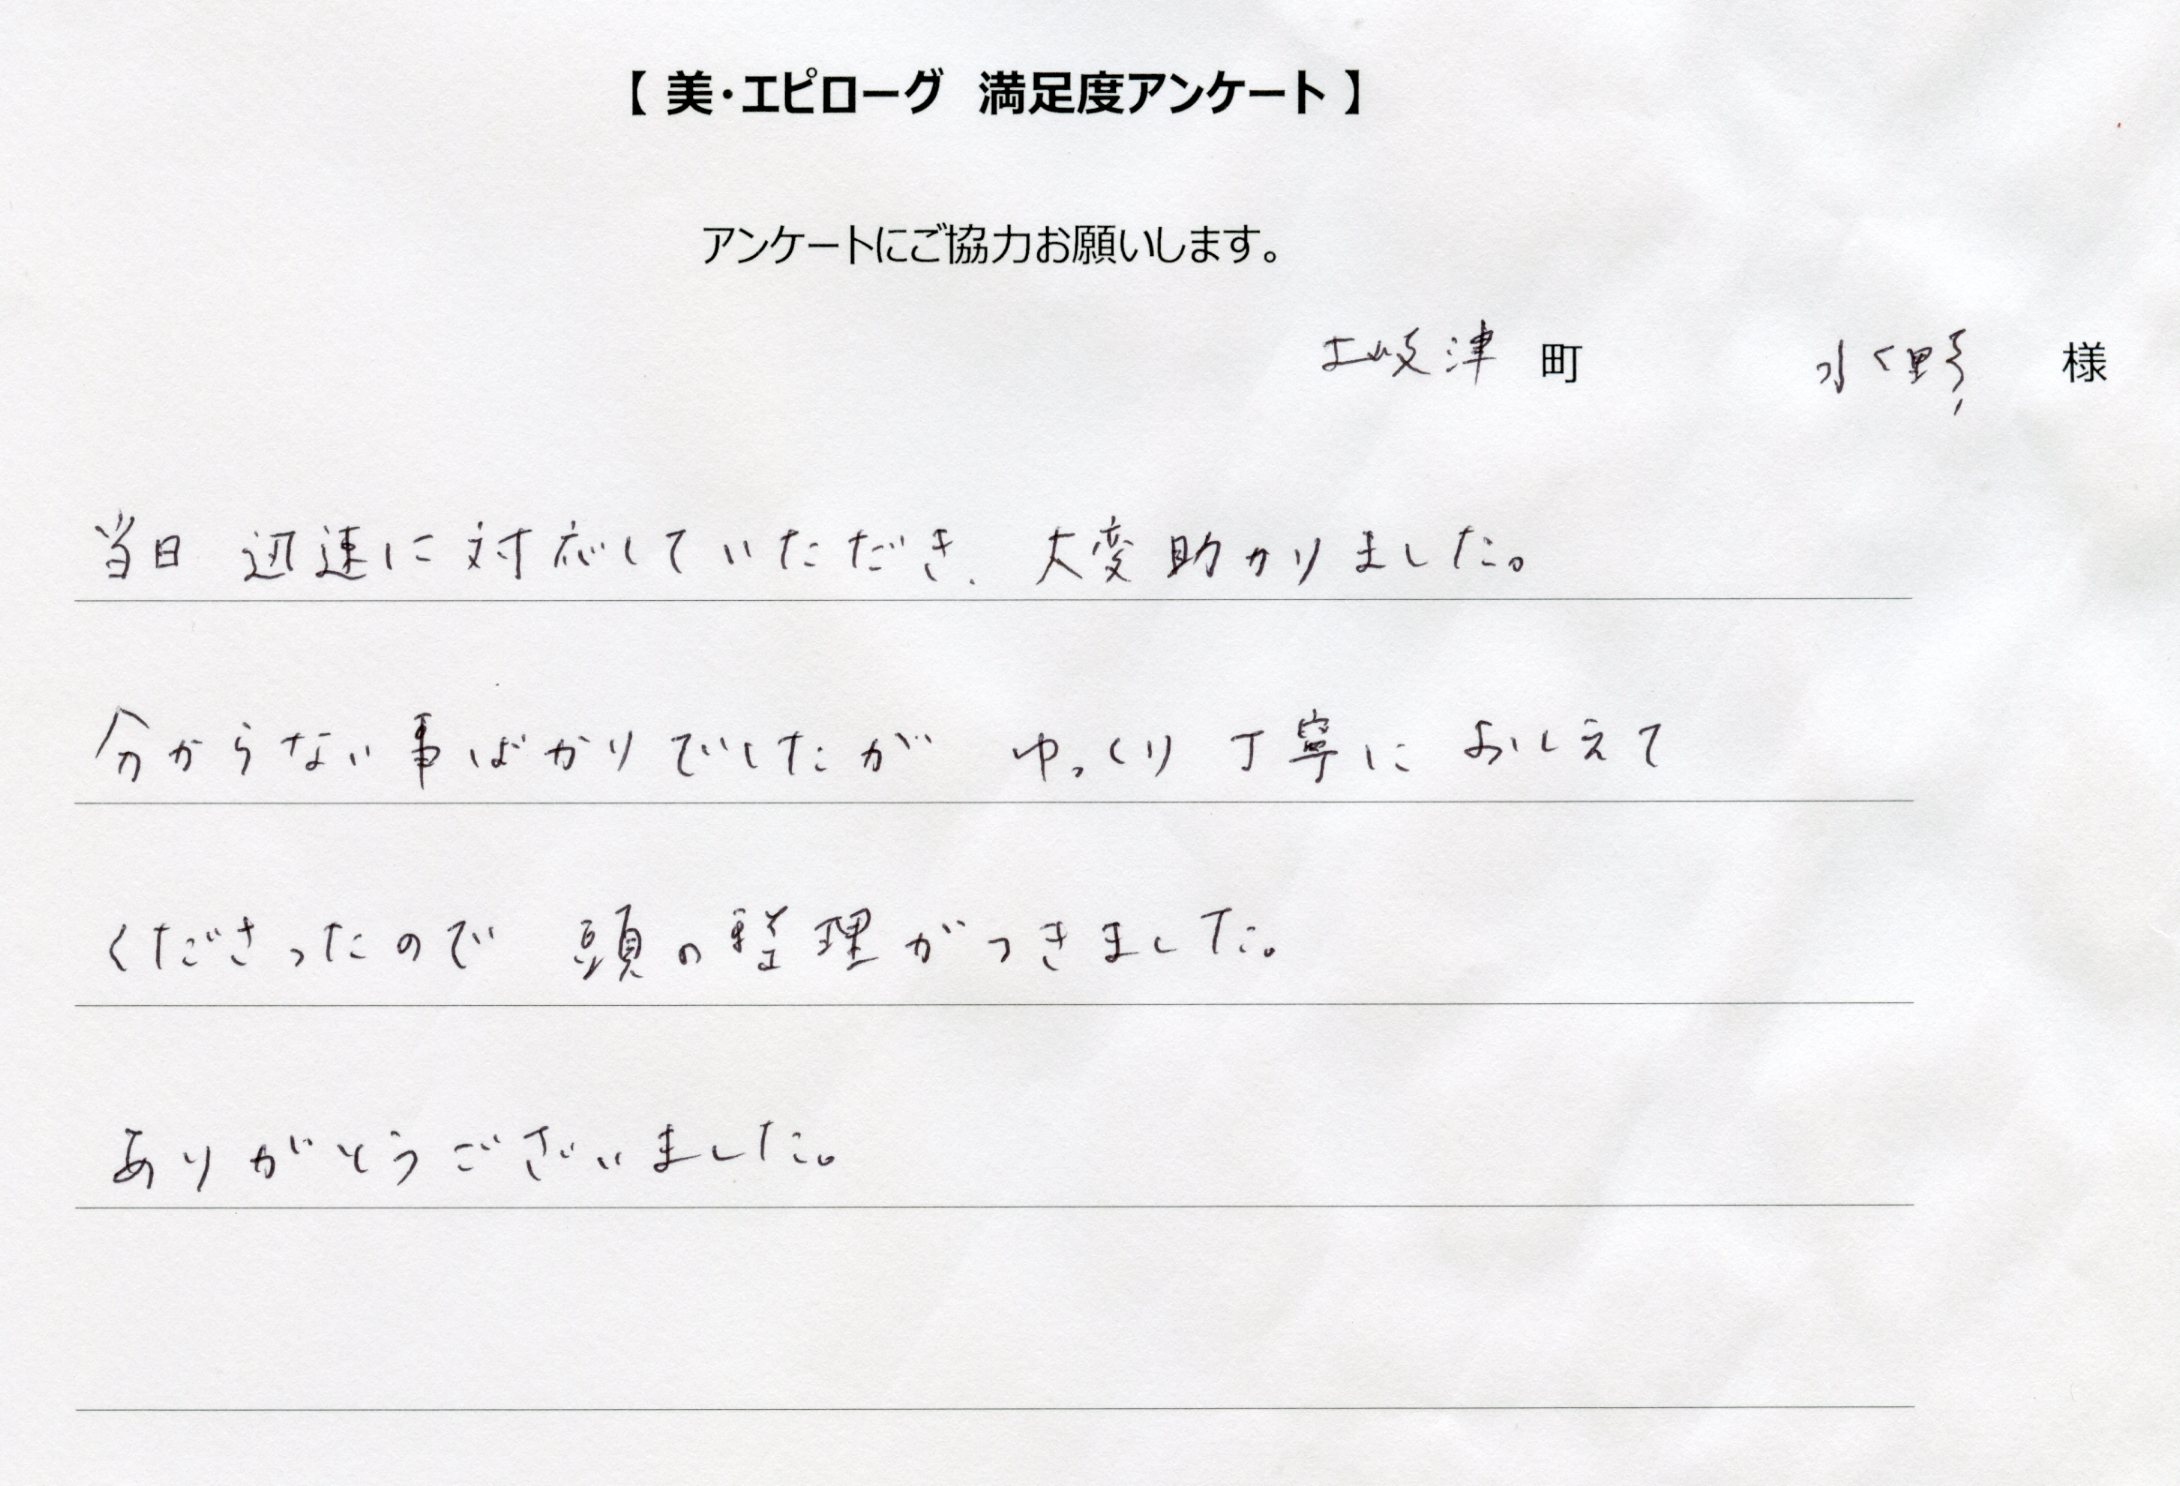 【 美・エピローグ 満足度アンケート 】
アンケートにご協力お願いします。
土岐津 町 水野 様
当日 迅速に対応していただき、大変助かりました。
分からない事ばかりでしたが ゆっくり丁寧に おしえて
くださったので 頭の整理がつきました。
ありがとうございました。